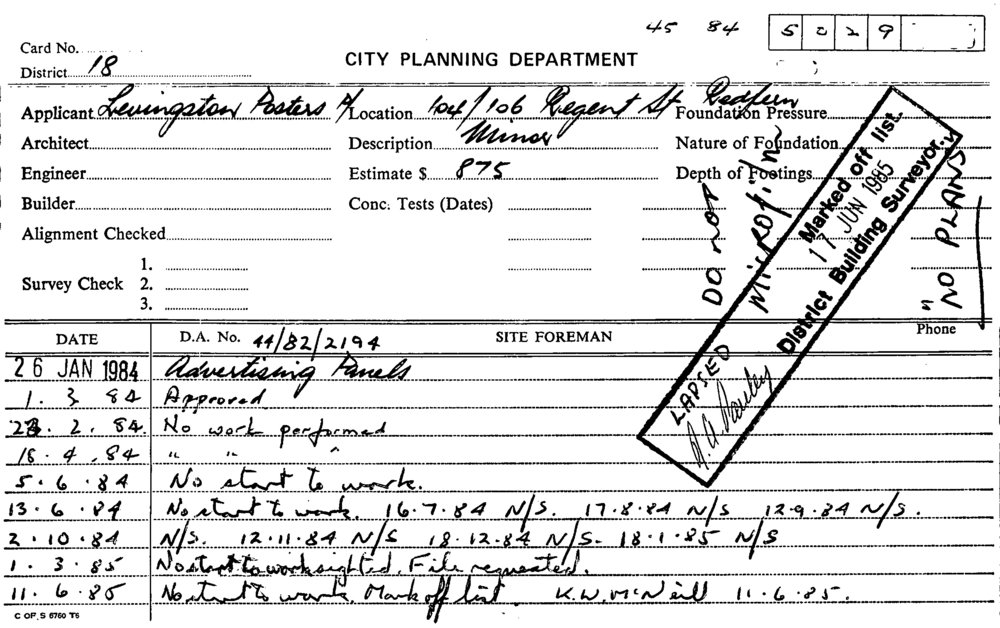 45 84 5229
Card No.
CITY PLANNING DEPARTMENT
District 18
Applicant Levingston Posters P/L Location 104/106 Regent St Redfern Foundation Pressure
Architect Description Minor Nature of Foundation
Engineer Estimate $ 875 Depth of Footings
Builder Conc. Tests (Dates)
Alignment Checked
1.
Survey Check 2.
3.
DO NOT
MICROFILM
"NO PLANS"
Marked off list.
17 JUN 1985
District Building Surveyor.
LAPSED
Phone
DATE D.A. No. 44/82/2194 SITE FOREMAN
26 JAN 1984 Advertising Panels
1. 3 84 Approved
2. 84 No work performed
18. 4. 84 " " "
5. 6. 84 No start to work.
13. 6. 84 No start to work. 16.7.84 N/S. 17.8.84 N/S 12.9.84 N/S.
2. 10. 84 N/S. 12.11.84 N/S 18.12.84 N/S. 18.1.85 N/S
1. 3. 85 No start to work sighted. File requested.
11. 6. 85 No start to work. Mark off list K.W. McNeill 11.6.85.
C OF S 6760 T5